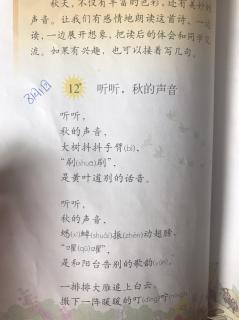 秋天，不仅有丰富的色彩，还有美妙的
声音。让我们有感情地朗读这首诗，一边
读，一边展开想象，把读后的体会和同学交
流。如果有兴趣，也可以接着写几句。
12* 听听，秋的声音
听听，
秋的声音，
大树抖抖手臂(bì)，
“刷(shuā)刷”，
是黄叶道别的话音。
听听，
秋的声音，
蟋(xī)蟀(shuài)振(zhèn)动翅膀，
“㘗(qū)㘗”，
是和阳台告别的歌韵(yùn)。
一排排大雁追上白云，
撒下一阵暖暖的叮(dīng)咛